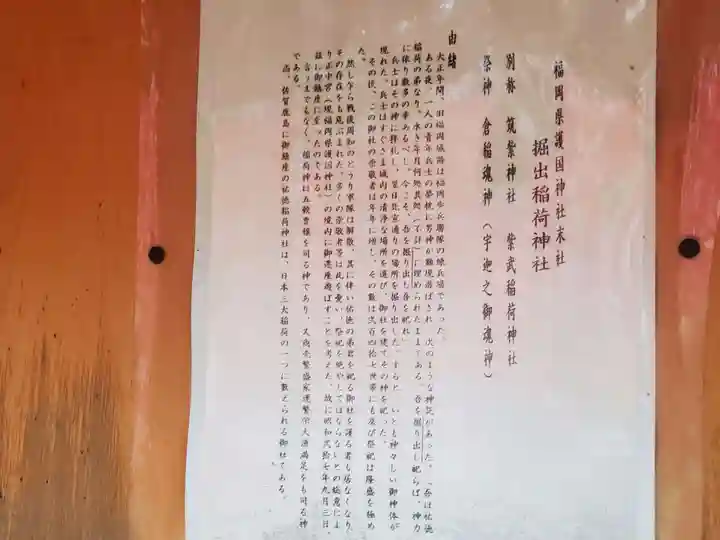 福岡県護国神社末社
掘出稲荷神社
別称 筑紫神社 紫武稲荷神社
祭神 倉稲魂神(宇迦之御魂神)
由緒
大正年間、旧福岡城跡は福岡歩兵聯隊の練兵場であった。
ある夜、一人の青年兵士の夢枕に男神が顕現遊ばされ 次のような神託があった。「吾は祐徳
稲荷の弟なり。永き年月何処其処(不詳)に埋められたままである。吾を掘り出し祀らば、神力
に依り数多の幸あるべし。今こそ、吾を掘り出し吾を祀れ」
兵士はその神に拝礼し、翌日比室通りの場所を掘り出した。すると、いとも神々しい御神体が
現れた。兵士はすぐさま城内の清浄な場所を選び、御社を建てその神を祀った。
その後、この御社の崇敬者は年々に増し、その数は弐百四拾七世帯にも及び祭祀は隆盛を極め
た。
然し乍ら戦後周知のとうり軍隊は解散、其に伴い祐徳の弟君を祀る御社を護る者も居なくなり、
その存在をも危ぶまれた。多くの崇敬者等は此を憂い、祭祀を絶やしてはならないとの總意によ
り正中宮(現福岡県護国神社)の境内に御遷座遊ばすことを考えた。故に昭和弐拾七年九月三日、
茲に御鎮座に至ったのである。
言うまでもなく、稲荷神は五穀豊穣を司る神であり、又商売繁盛家運繁栄大漁満足をも司る神
である。
尚、佐賀鹿島に御鎮座の祐徳稲荷神社は、日本三大稲荷の一つに数えられる御社である。